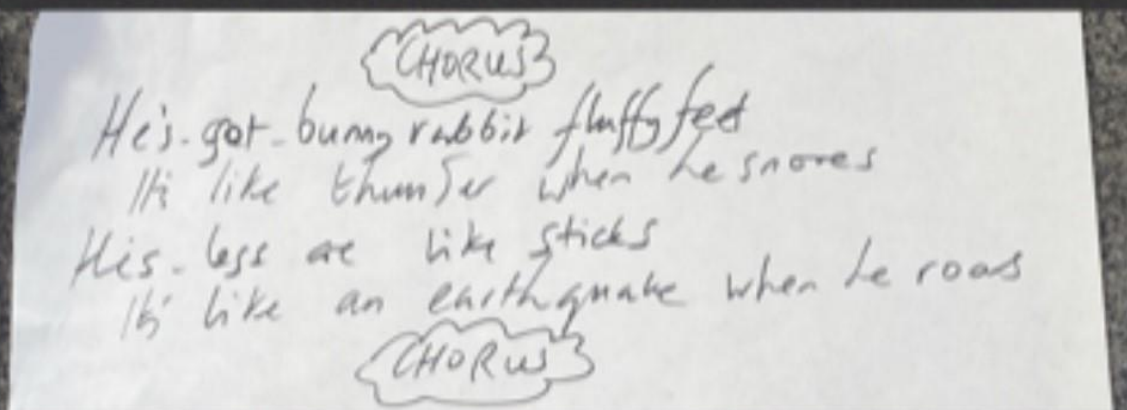 CHORUS
He's got bunny rabbit fluffy feet
It's like thunder when he snores
His legs are like sticks
It's like an earthquake when he roars
CHORUS